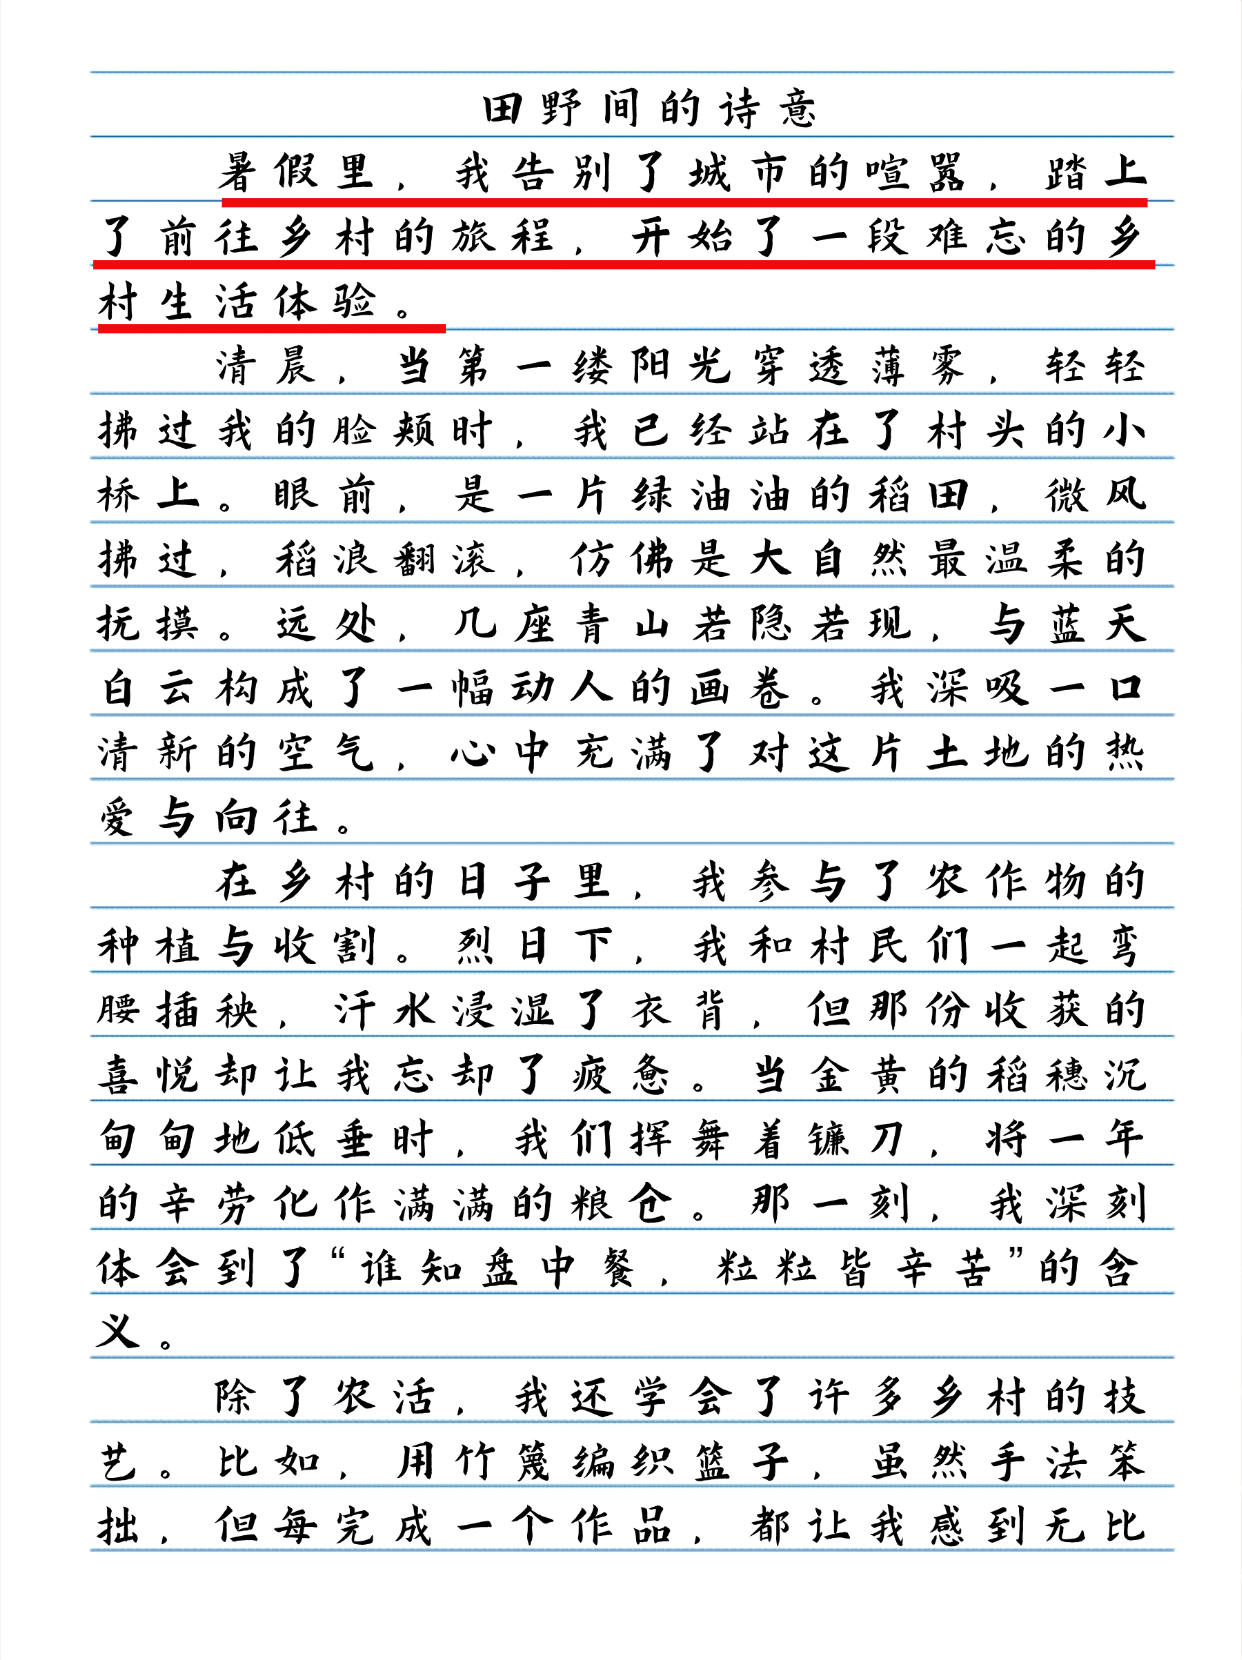 田野间的诗意
暑假里，我告别了城市的喧嚣，踏上
了前往乡村的旅程，开始了一段难忘的乡
村生活体验。
清晨，当第一缕阳光穿透薄雾，轻轻
拂过我的脸颊时，我已经站在了村头的小
桥上。眼前，是一片绿油油的稻田，微风
拂过，稻浪翻滚，仿佛是大自然最温柔的
抚摸。远处，几座青山若隐若现，与蓝天
白云构成了一幅动人的画卷。我深吸一口
清新的空气，心中充满了对这片土地的热
爱与向往。
在乡村的日子里，我参与了农作物的
种植与收割。烈日下，我和村民们一起弯
腰插秧，汗水浸湿了衣背，但那份收获的
喜悦却让我忘却了疲惫。当金黄的稻穗沉
甸甸地低垂时，我们挥舞着镰刀，将一年
的辛劳化作满满的粮仓。那一刻，我深刻
体会到了“谁知盘中餐，粒粒皆辛苦”的含
义。
除了农活，我还学会了许多乡村的技
艺。比如，用竹篾编织篮子，虽然手法笨
拙，但每完成一个作品，都让我感到无比